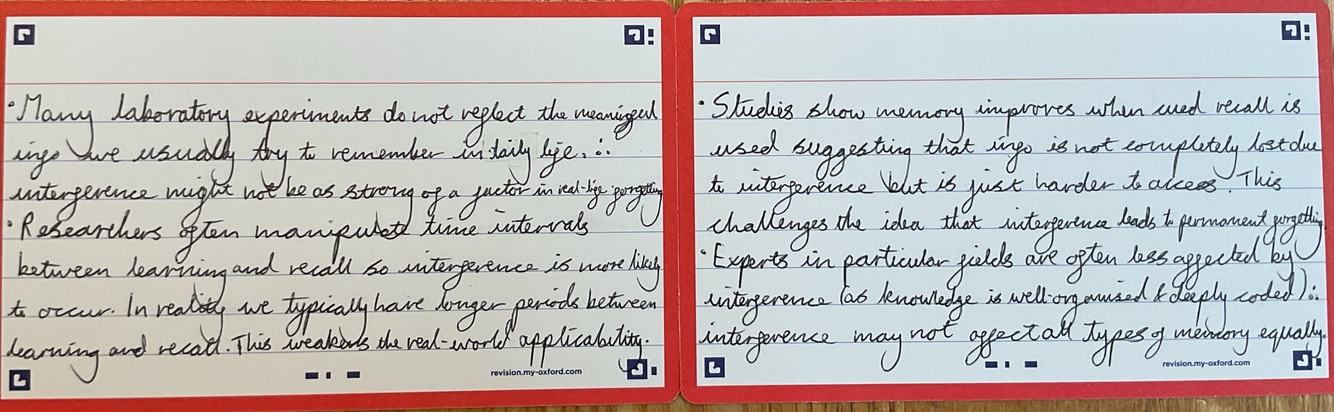 • Many laboratory experiments do not reglect the meaningful
info we usually try to remember in daily life. ∴
interference might not be as strong of a factor in real-life forgetting
• Researchers often manipulate time intervals
between learning and recall so interference is more likely
to occur. In reality we typically have longer periods between
learning and recall. This weakens the real-world applicability.
revision.my-oxford.com
• Studies show memory improves when cued recall is
used suggesting that info is not completely lost due
to interference but is just harder to access. This
challenges the idea that interference leads to permanent forgetting.
• Experts in particular fields are often less affected by
interference (as knowledge is well-organised & deeply coded) ∴
interference may not affect all types of memory equally.
revision.my-oxford.com